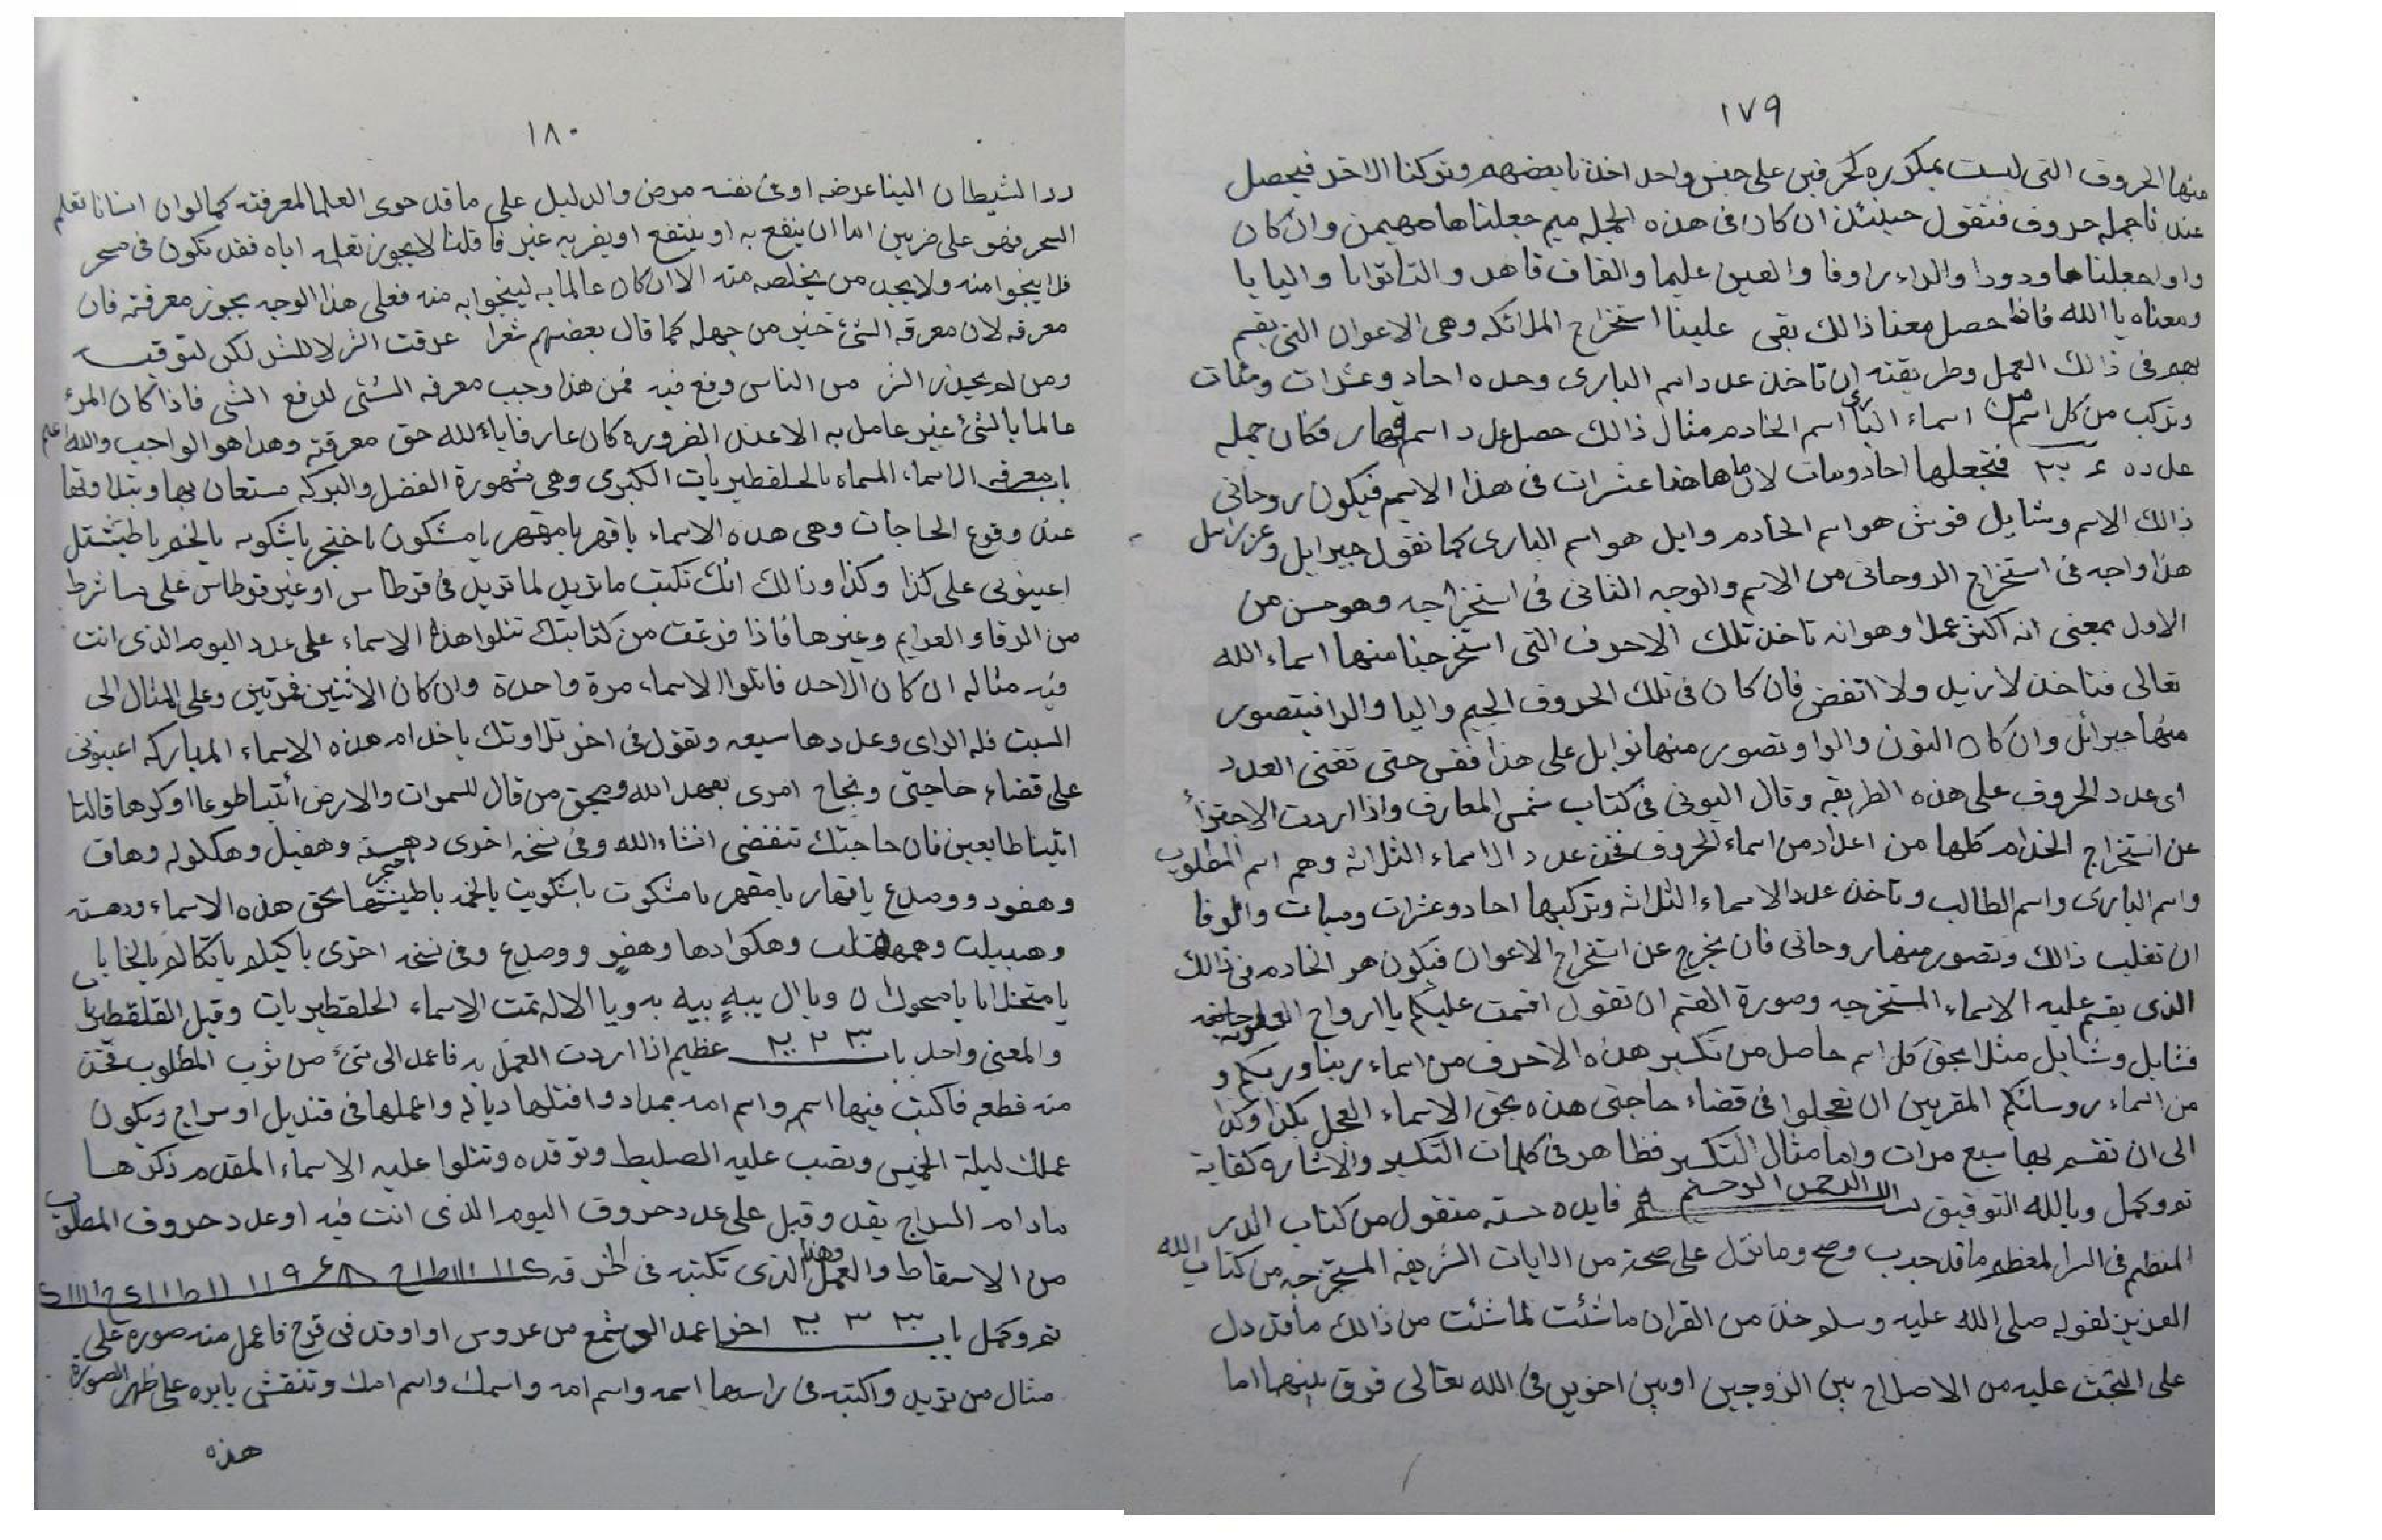 ١٧٩
منها الحروف التى ليست بمكرره كحرفين على جنس واحد اخذنا بعضهم وتركنا الاخر فيحصل
عندنا جمله حروف فنقول حينئذ ان كان فى هذه الجمله ميم جعلناها مهيمن وان كان
واوا جعلناها ودودا والراء راوفا والعين عليما والقاف قاهر والتا توابا واليا يا
ومعناه يا الله فاذا حصل معنا ذالك بقى علينا استخراج الملائكه وهى الاعوان التى يقسم
بهم فى ذالك العمل وطريقته ان تاخذ عدد اسم البارى وحده احاد وعشرات ومئات
وتركب من كل اسم من اسماء البارى اسم الخادم مثال ذالك حصل عدد اسم قهار فكان جمله
عدده فتجعلها احاد ومئات لان ما هاهنا عشرات فى هذا الاسم فيكون روحانى
ذالك الاسم وشايل فوش هو اسم الخادم وايل هو اسم البارى كما نقول جبرايل وعزرائيل
هذا وجه فى استخراج الروحانى من الاسم والوجه الثانى فى استخراجه وهو حسن من
الاول بمعنى انه اكثر عملا وهو انه تاخذ تلك الاحرف التى استخرجنا منها اسماء الله
تعالى فتاخذ لا نزيد ولا انقض فان كان فى تلك الحروف الجيم واليا والرا فيتصور
منها جبرائل وان كان النون والواو تصور منها نوايل على هذا فقس حتى تفنى العدد
اى عدد الحروف على هذه الطريقه وقال البونى فى كتاب شمس المعارف واذا اردت الاجتزأ
عن استخراج الخدام كلها من اعداد من اسماء الحروف فخذ عدد الاسماء الثلاثه وهم اسم المطلوب
واسم البارى واسم الطالب وتاخذ عدد الاسماء الثلاثه وتركبها احاد وعشرات وميات والوفا
ان تغلب ذالك وتصور منها روحانى فان يخرج عن استخراج الاعوان فيكون هو الخادم فى ذالك
الذى يقسم عليه الاسماء المستخرجه وصورة القسم ان تقول اقسمت عليكم يا ارواح الروحانيه
فشايل وشايل مثلا بحق كل اسم حاصل من تكسير هذه الاحرف من اسماء ربنا وربكم و
من اسماء روسائكم المقربين ان تعجلوا فى قضاء حاجتى هذه بحق الاسماء العجل بكذا وكذا
الى ان تقسم بها سبع مرات واما مثال التكسير فظاهر فى كلمات التكسير والاشاره كفاية
تم وكمل وبالله التوفيق الله الرحمن الرحيم فايده حسنه منقول من كتاب الدر
المنظم فى السر المعظم ما قد جرب وصح وما نزل على صحة من الايات الشريفه المستخرجه من كتاب الله
العزيز لقوله صلى الله عليه وسلم خذ من القران ما شئت لما شئت من ذالك ما قد دل
على البحث عليه من الاصلاح بين الزوجين او بين اخوين فى الله تعالى فرق بينهما اما
١٨٠
رد الشيطان الينا عرضه او عن نفسه مرض والدليل على ما قد حوى العلما لمعرفته كما لو ان انسانا تعلم
السحر فهو على ضربين اما ان ينفع به او ينتفع او يضر به غيره فا قلنا لا يجوز تعلمه اياه فقد تكون فى سحر
فلا ينجوا منه ولا يجد من يخلصه منه الا ان كان عالما به لينجوا به منه فعلى هذا الوجه يجوز معرفته فان
معرفه لان معرفه الشئ خير من جهله كما قال بعضهم شعرا عرفت الشر لا للشر لكن لتوقيه
ومن لم يحذر الشر من الناس وقع فيه فمن هذا وجب معرفه الشئ لدفع الشى فاذا كان المرء
عالما بالشئ غير عامل به الا عند الضروره كان عارفا بالله حق معرفته وهذا هو الواجب والله اعلم
باب معرفه الاسماء المسماه بالحلقطيريات الكبرى وهى مشهورة الفضل والبركه مستعان بها وبتلاوتها
عند وقوع الحاجات وهى هذه الاسماء يا قهر يا مقهر يا مشكون يا خنجر يا شكويه يا لخم يا طيشتل
اعينونى على كذا وكذا وذالك انك تكتب ما تريد لما تريد فى قرطاس او غير قرطاس على ما شرط
من الرقا والعزايم وغيرها فاذا فرغت من كتابتك تتلوا هذه الاسماء على عدد اليوم الذى انت
فيه مثاله ان كان الاحد فاتلوا الاسماء مرة واحدة وان كان الاثنين فمرتين وعلى المثال الى
السبت فله الراى وعددها سبعه وتقول فى اخر تلاوتك يا خدام هذه الاسماء المباركه اعينونى
على قضاء حاجتى ونجاح امرى بعهد الله وبحق من قال للسموات والارض ائتيا طوعا او كرها قالتا
اتينا طايعين فان حاجتك تنقضى انشاء الله وفى نسخه اخرى دهسنه وهفيل وهكلوله وهاف
وهفود ووصدع يا قهار يا مقهر يا مشكوت يا شكويت يا لخمد يا طيشتها بحق هذه الاسماء ودهسنه
وهبيلت وهكوادها وهفو ووصدع وفى نسخه اخرى يا كيلم يا تكالو يا لخايا يا
يا متخذايا يا مسحوك ان ويا ال بيه بيه به ويا الاله تمت الاسماء الحلقطيريات وقيل القلقطيريات
والمعنى واحد باب عظيم اذا اردت العمل به فاعمد الى شئ من ثوب المطلوب فخذ
منه قطعه فاكتب فيها اسم واسم امه بمداد وافتلها دباله واعملها فى قنديل او سراج ويكون
عملك ليلة الخميس وتصب عليه الصليط وتوقده وتتلوا عليه الاسماء المقدم ذكرها
مادام السراج يقد وقيل على عدد حروف اليوم الذى انت فيه او عدد حروف المطلوب
من الاسقاط والعمل وهذا الذى تكتبه فى الخرقه
تم وكمل باب اخر اعمد الى شمع من عروس او اوقد فى قرح فاعمل منه صوره على
مثال من تريد واكتبه فى راسها اسمه واسم امه واسمك واسم امك وتنقش بابره على ظهر الصورة
هذه